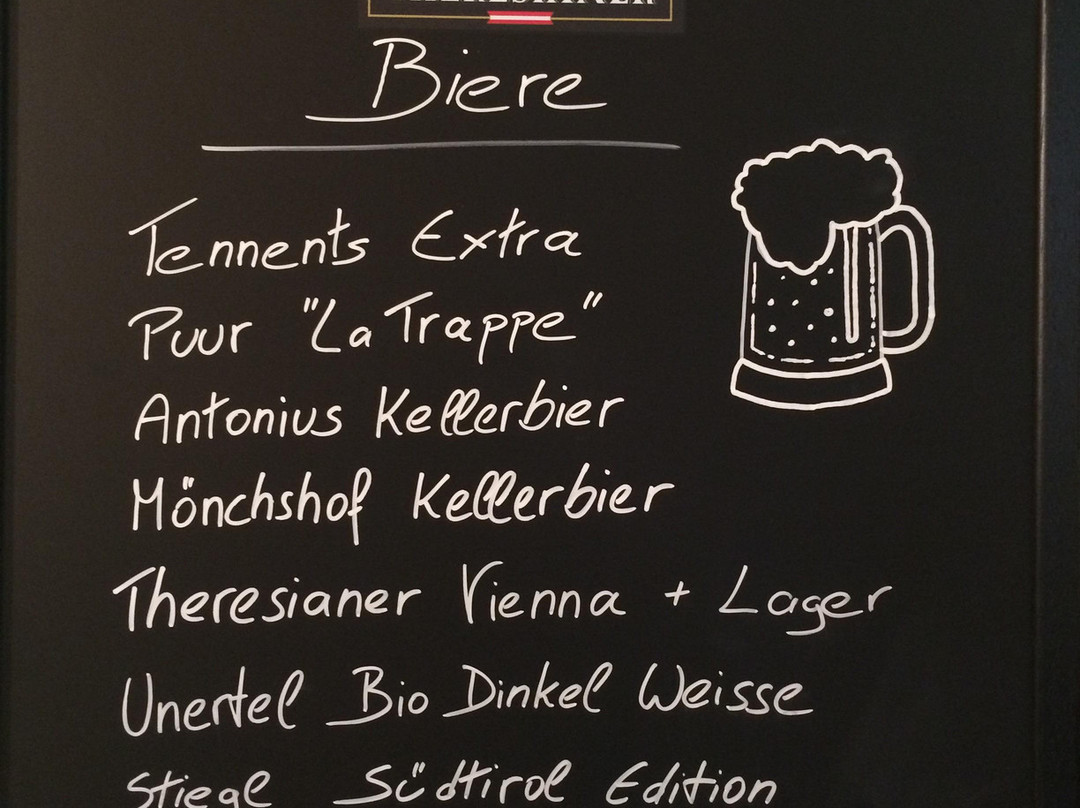 Biere
Tennents Extra
Puur "La Trappe"
Antonius Kellerbier
Mönchshof Kellerbier
Theresianer Vienna + Lager
Unertel Bio Dinkel Weisse
Stiegl Südtirol Edition